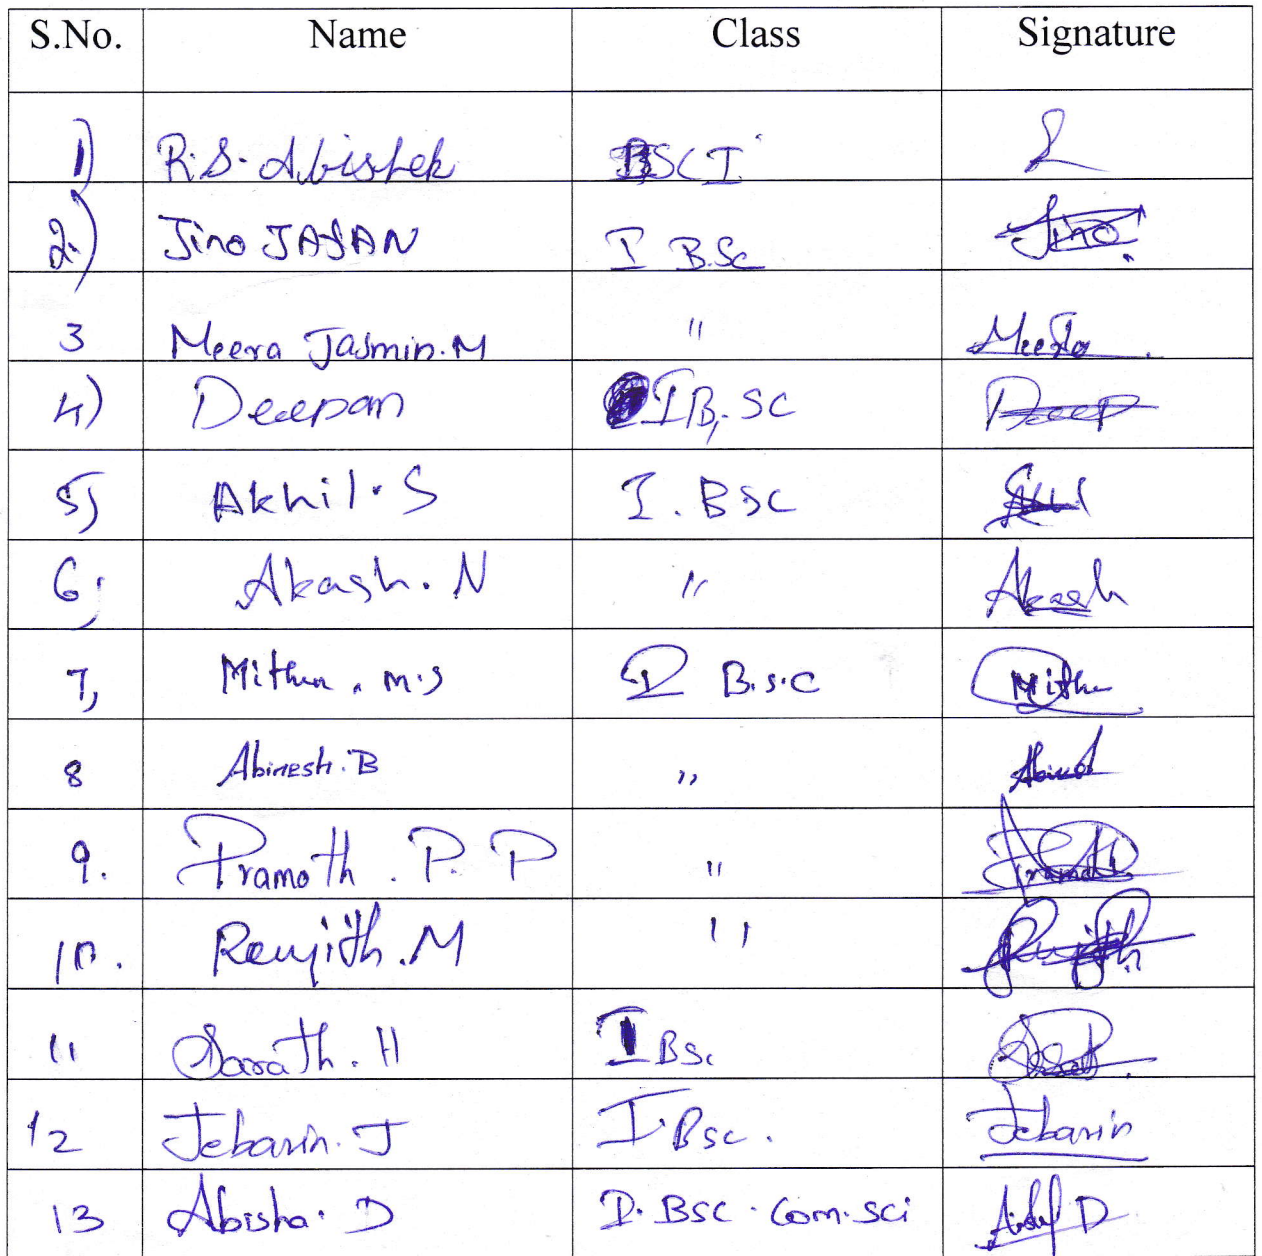 S.No. Name Class Signature
1) R.S. Abishek BSC I
2.) Jino JASAN I B.Sc Jino
3 Meera Jasmin.M " Meera
4) Deepan I B.SC Deep
5) Akhil.S I. BSC Akhil
6) Akash. N " Akash
7) Mithun. M.S I B.S.C Mithu
8 Abinesh.B "
9. Pramoth. P. P " Pramoth
10. Renjith.M " Renjith
11 Sarath. H I BSc
12 Jebarin. J I.Bsc. Jebarin
13 Abisha. D I. BSC. Com.sci D